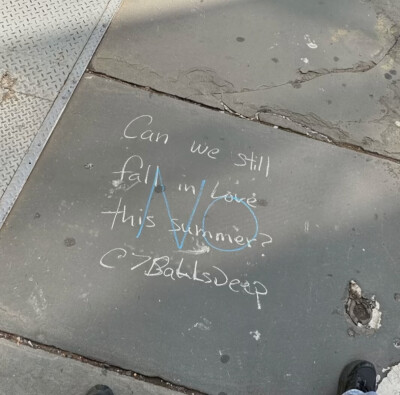 Can we still
fall in Love
this summer?
NO